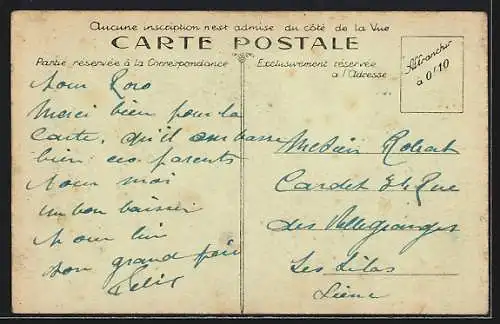 Aucune inscription n'est admise du côté de la Vue
CARTE POSTALE
Partie réservée à la Correspondance
Exclusivement réservée
à l'Adresse
Affranchir
à 0f10
Pour Roro
Merci bien pour la
Carte, qu'il embrasse
bien ces parents
Pour moi
un bon baiser
Pour lui
son grand père
Félix
Robert
Cardet 34 Rue
des Villegranges
Les Lilas
Seine